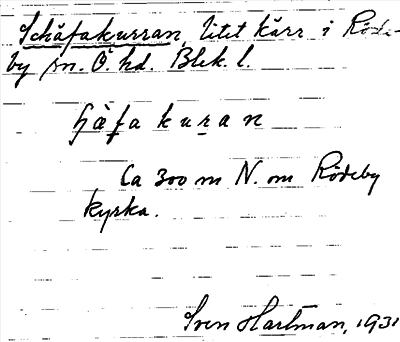 Schäfakurran, litet kärr i Röde-
by sn. Ö. hd. Blek. l.
a k u r a n
Ca 300 m N. om Rödeby
kyrka.
Sven Hartman, 1931